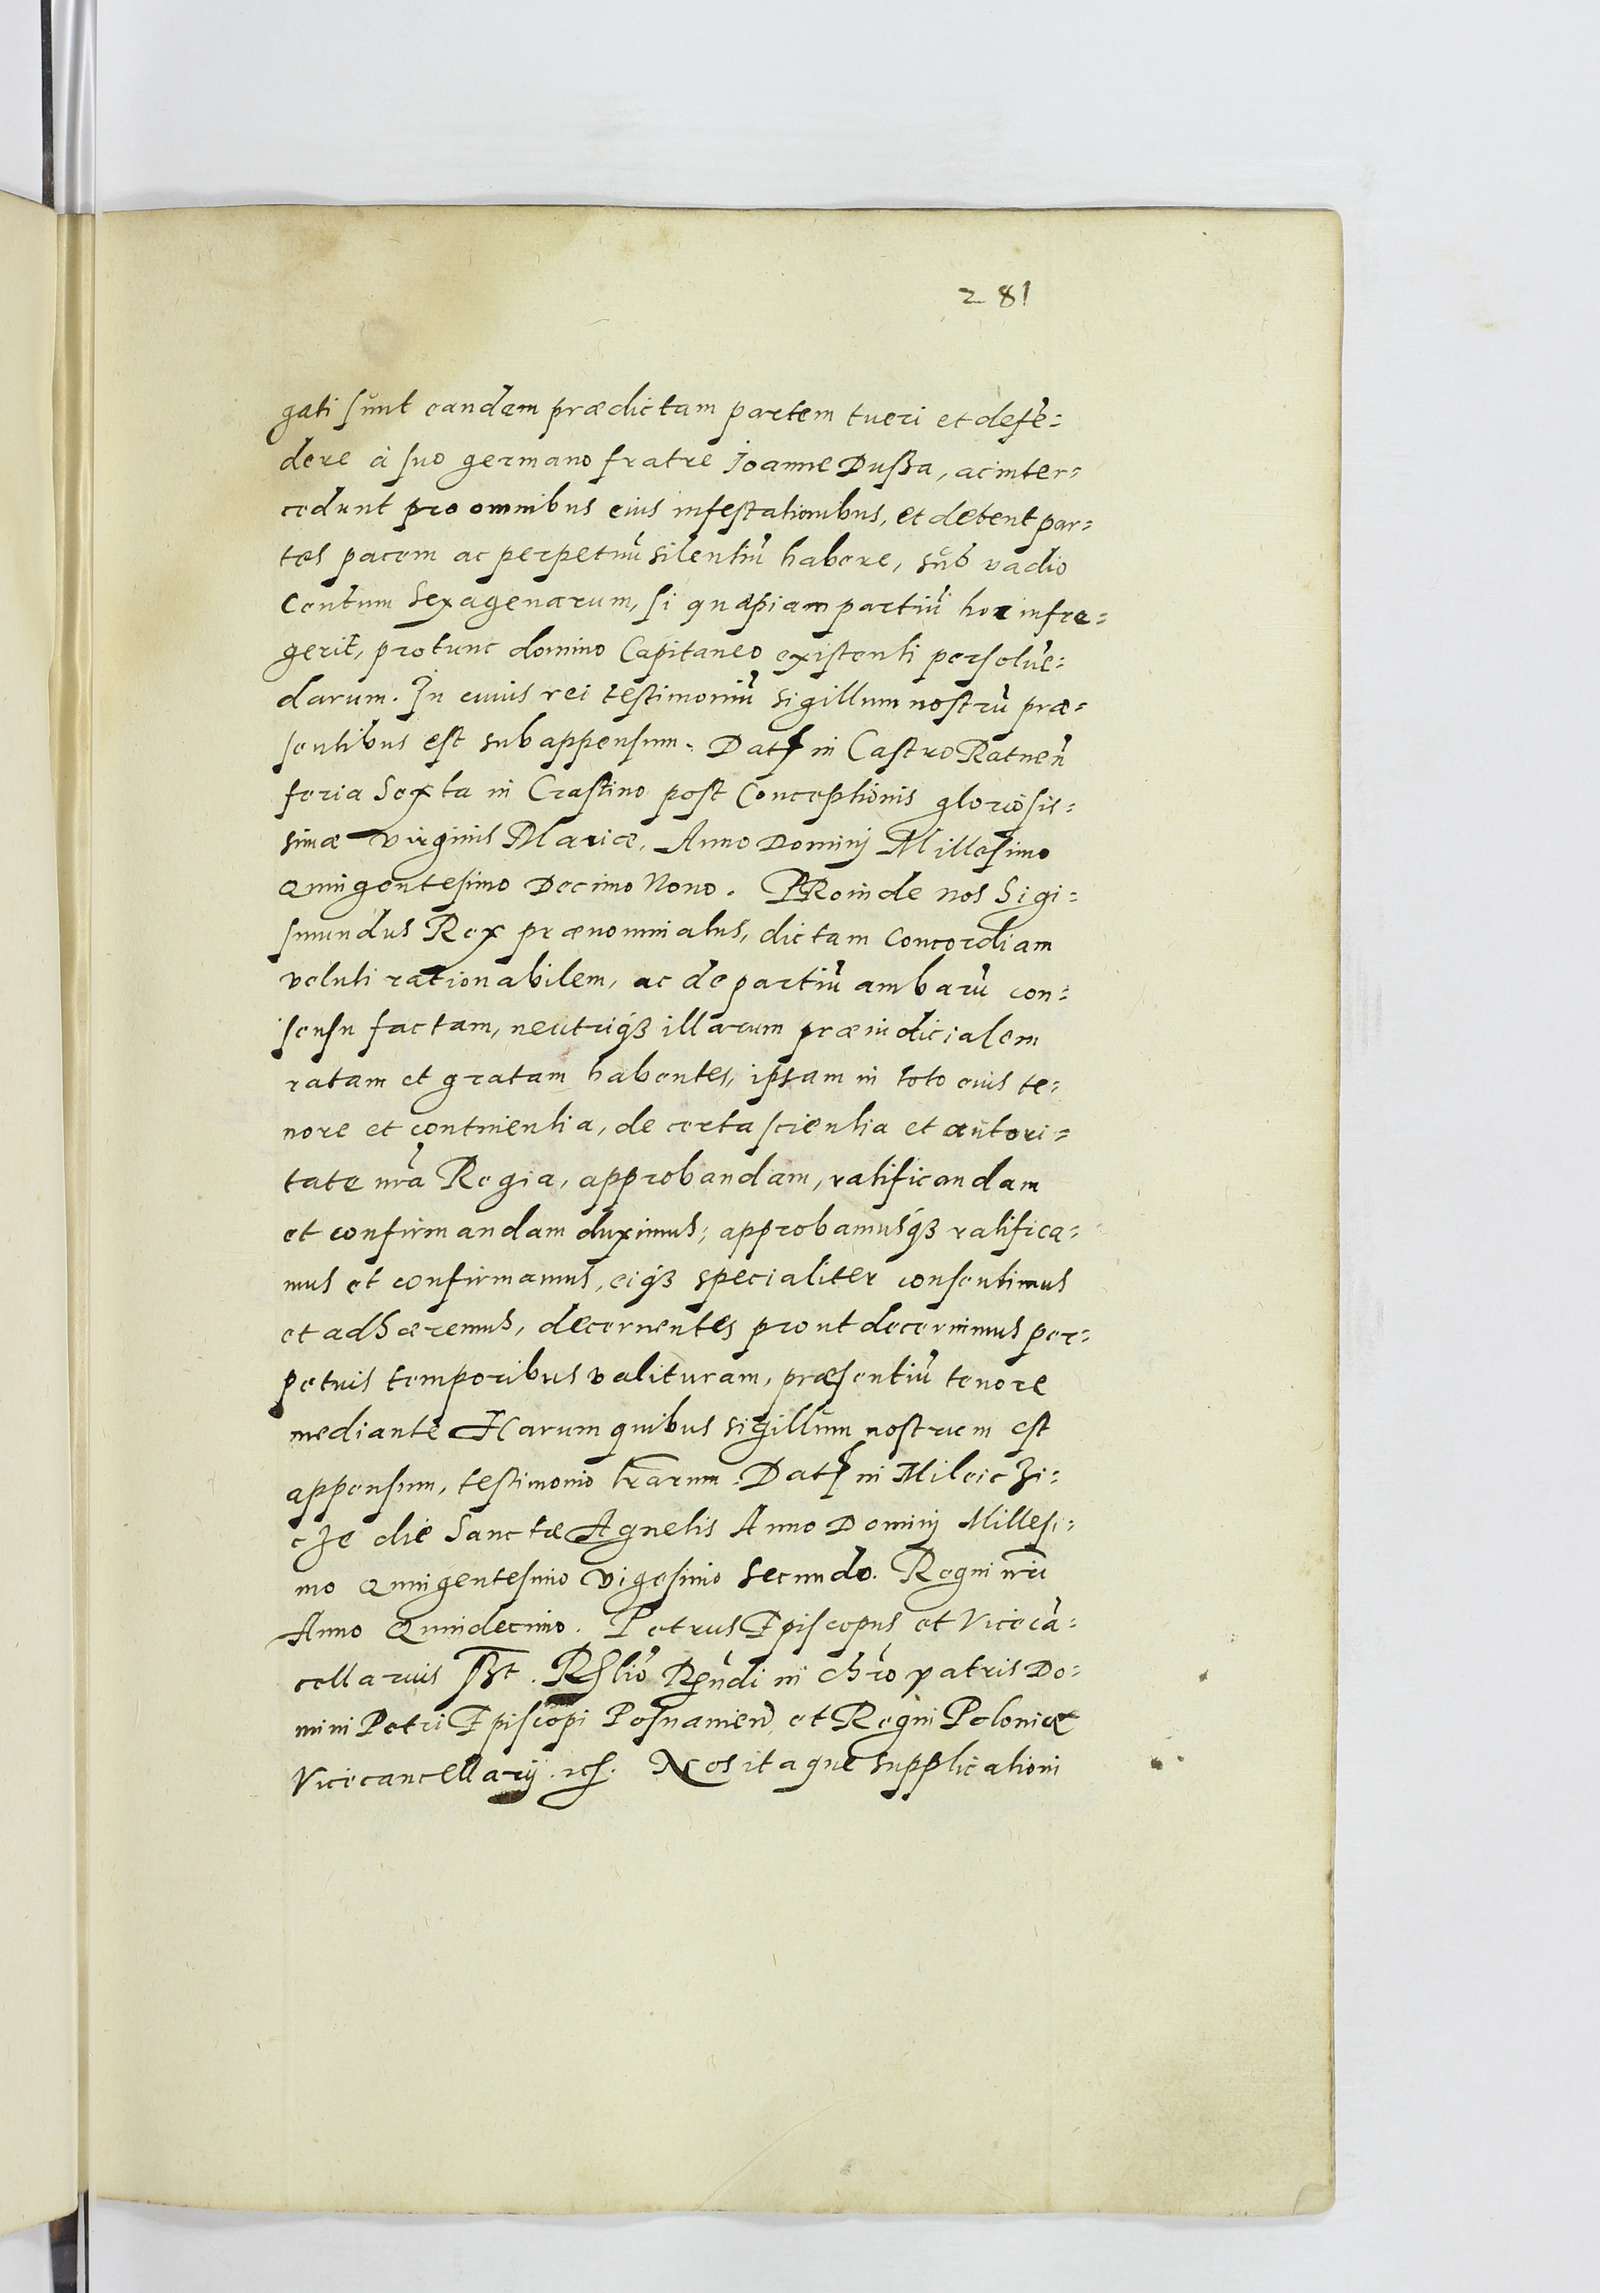 281
gati sunt eandem prædictam partem tueri et defē=
dere à suo germano fratre Joanne Dussa, ac inter=
cedunt pro omnibus eius infestationibus, et debent par=
tes pacem ac perpetuū silentiū habere, sub vadio
Centum Sexagenarum, si quæpiam partiū hoc infre=
gerit, protunc domino Capitaneo existenti persolvē=
darum. In cuius rei testimoniū sigillum nostrū præ=
sentibus est subappensum. Dat in Castro Ratneñ
feria Sexta in Crastino post Conceptionis gloriosis=
simæ virginis Mariæ, Anno Dominj Millesimo
Quingentesimo Decimo Nono. PRoinde nos Sigi=
smundus Rex prænominatus, dictam concordiam
veluti rationabilem, ac de partiū ambarū con=
sensu factam, neutriq3 illarum præiudicialem
ratam et gratam habentes, ipsam in toto eius te=
nore et continentia, de certa scientia et autori=
tate nr̃a Regia, approbandam, ratificandam
et confirmandam duximus; approbamusq3 ratifica=
mus et confirmamus, eiq3 specialiter consentimus
et adhæremus, decernentes prout decernimus per=
petuis temporibus valituram, præsentiū tenore
mediante Harum quibus sigillum nostrum est
appensum, testimonio lr̃arum. Dat in Mileiczi=
cze die Sanctæ Agnetis Anno Dominj Millesi=
mo Quingentesimo Vigesimo secundo. Regni nr̃i
Anno Quindecimo. Petrus Episcopus et Vicecā=
cellarius sst. Rēlio Rn̄di in chr̃o patris Do=
mini Petri Episcopi Posnanieñ et Regni Poloniæ
Vicecancellarij. Nos itaque supplicationi